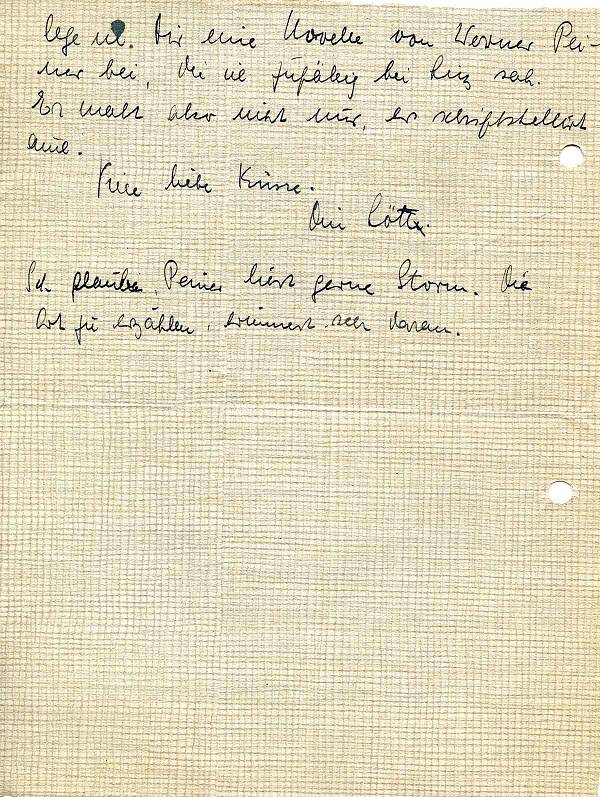 lege ich Dir eine Novelle von Werner Pei-
ner bei, die ich zufällig bei Linz sah.
Er malt also nicht nur, er schriftstellert
auch.
Viele liebe Küsse.
Dein Götte.
Ich glaube, Peiner liest gerne Storm. Die
Art zu erzählen, erinnert sehr daran.